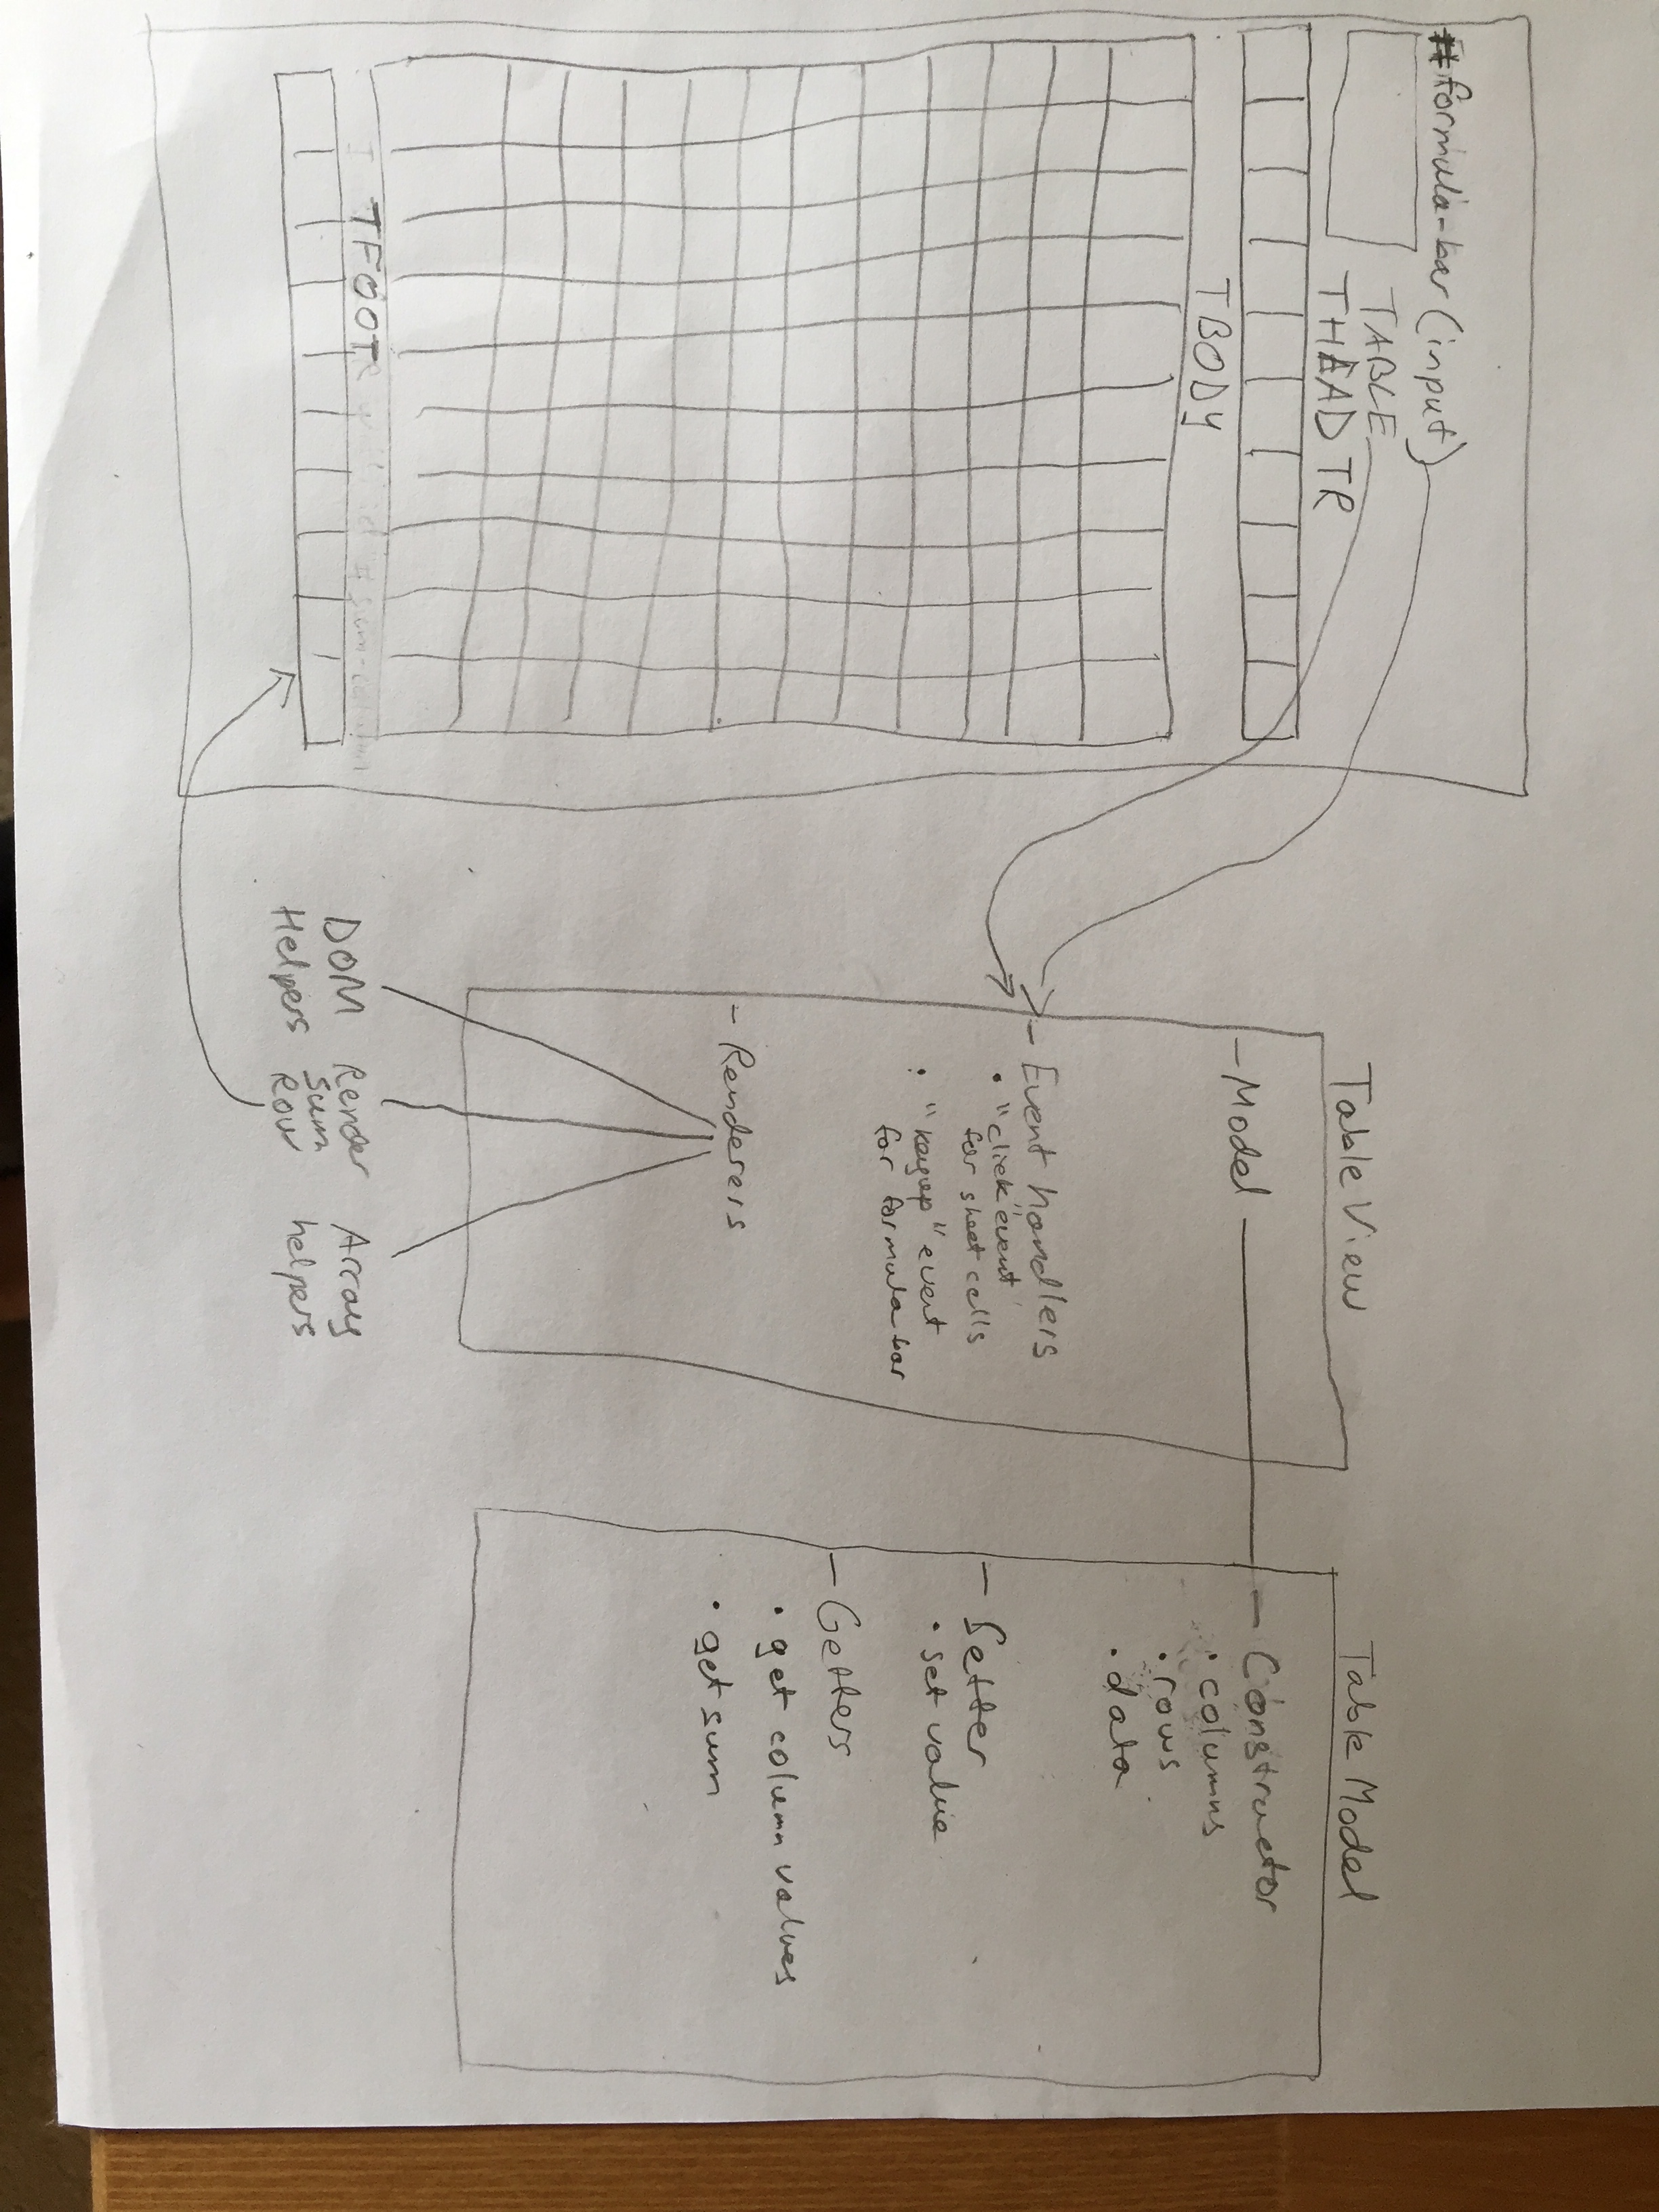 #formula-bar (input)
TABLE
THEAD TR
TBODY
TFOOT
Table View
- Model
- Event handlers
• "click" event
for sheet cells
• "keyup" event
for formula bar
- Renderers
DOM
Helpers
Render
Sum
Row
Array
helpers
Table Model
- Constructor
• columns
• rows
• data
- Setter
• set value
- Getters
• get column values
• get sum